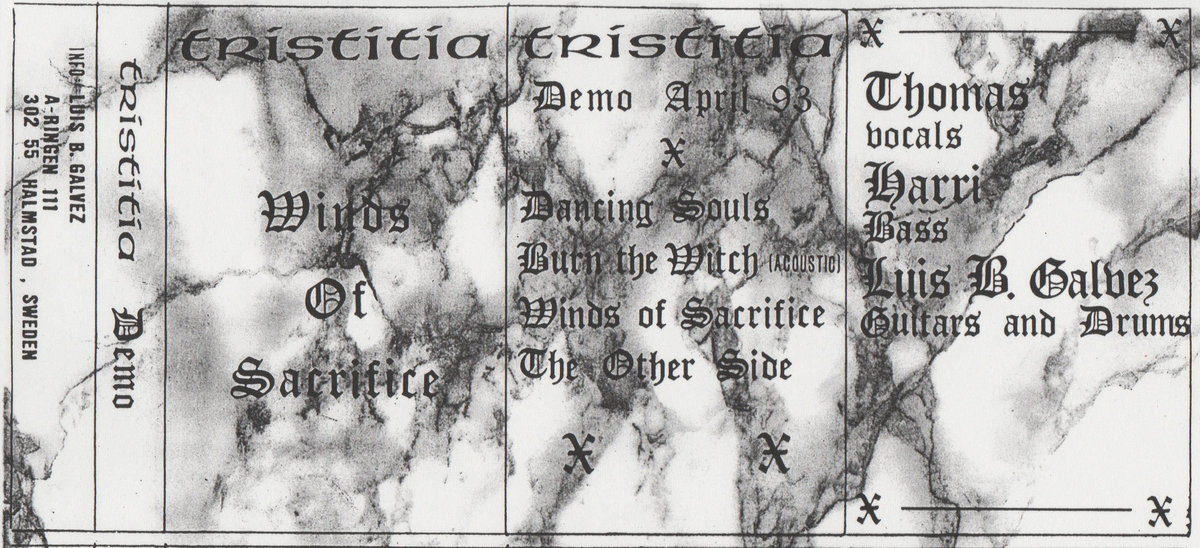 INFO: LUIS B. GALVEZ
A-RINGEN 111
302 55 HALMSTAD , SWEDEN
tristitia Demo
tristitia
Winds
Of
Sacrifice
tristitia
Demo April 93
X
Dancing Souls
Burn the Witch (ACOUSTIC)
Winds of Sacrifice
The Other Side
X X
X X
Thomas
vocals
Harri
Bass
Luis B. Galvez
Guitars and Drums
X X